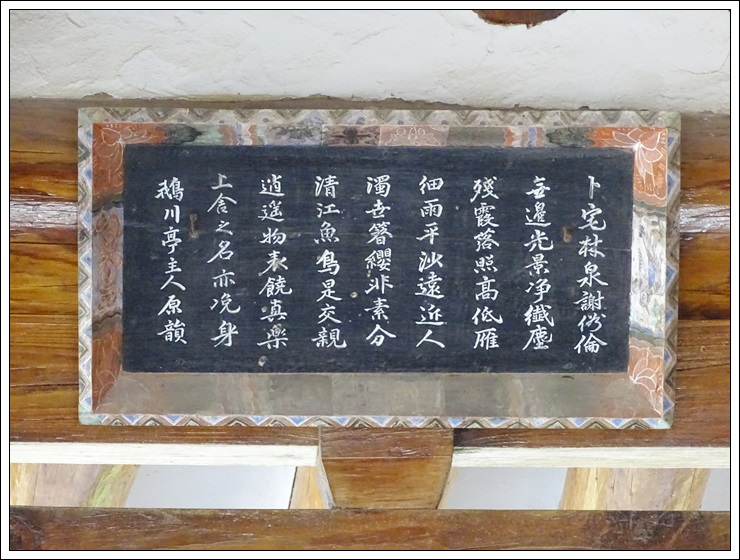 卜宅林泉謝俗倫
無邊光景净纖塵
殘霞落照髙低雁
細雨平沙遠近人
濁世簪纓非素分
清江魚鳥是交親
逍遥物表饒真楽
上舍之名亦浼身
鵝川亭主人原韻